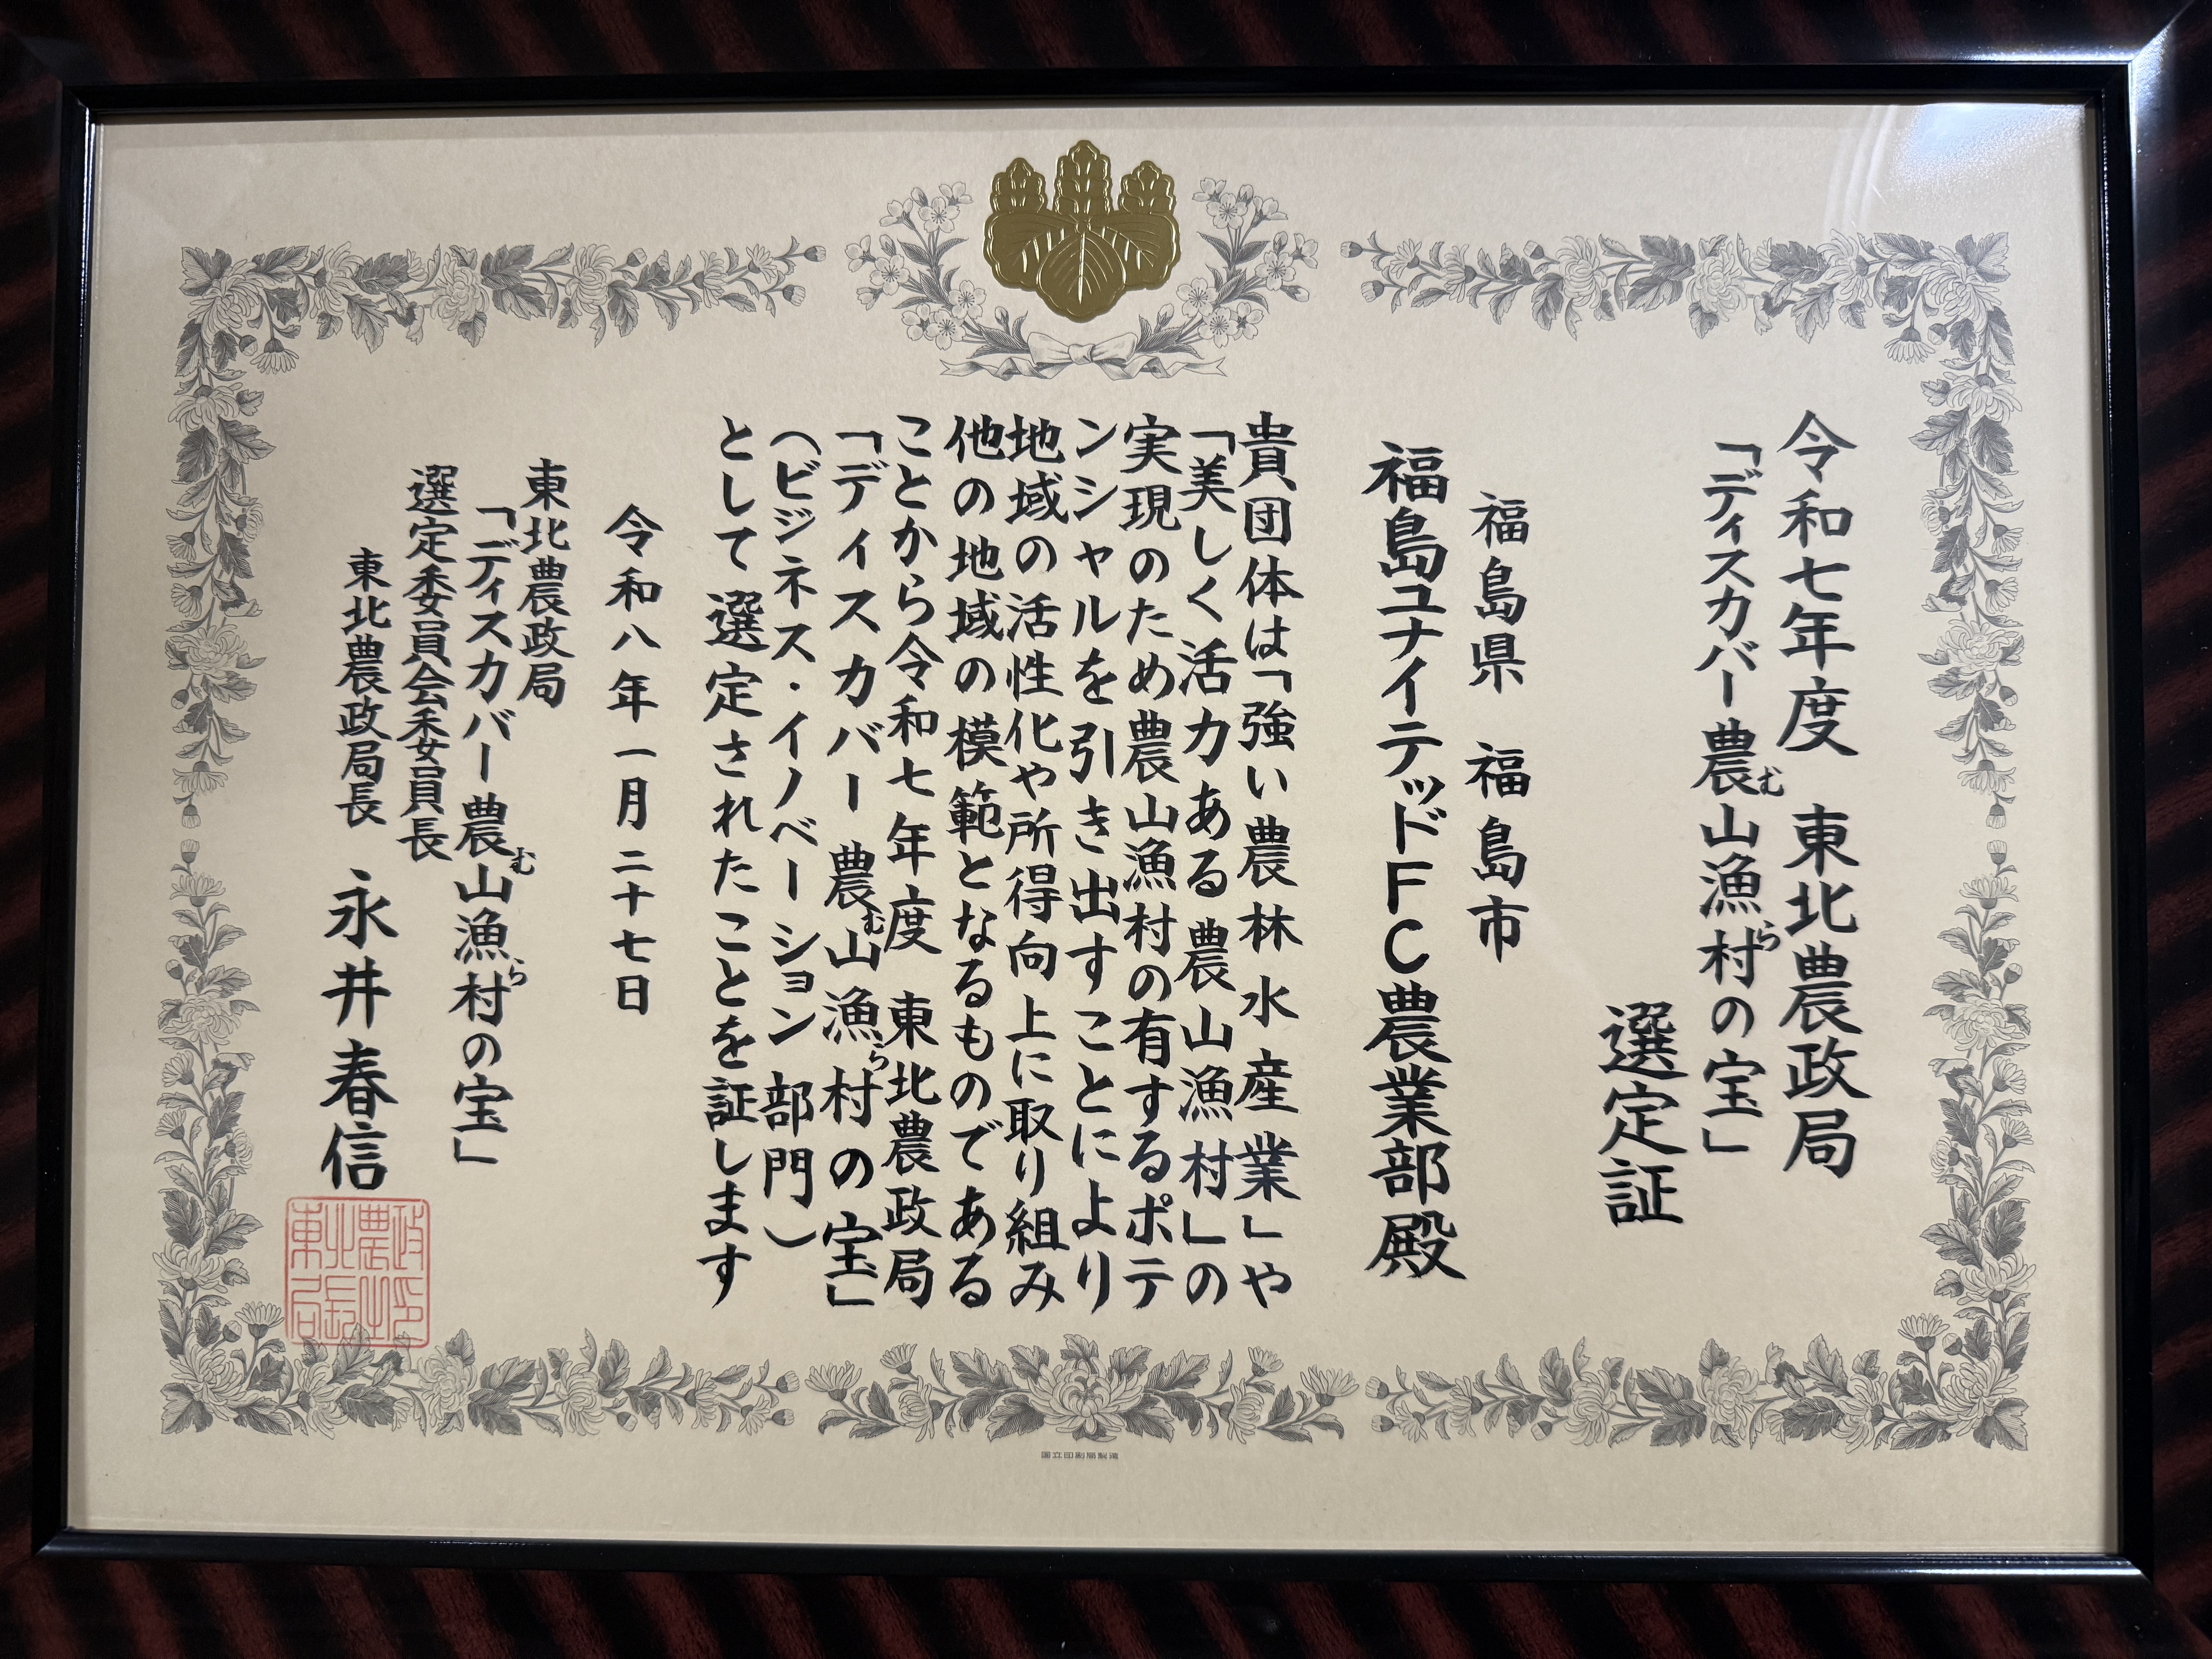 令和七年度　東北農政局
「ディスカバー農山漁村の宝」
む　ら
選定証
福島県　福島市
福島ユナイテッドFC農業部殿
貴団体は「強い農林水産業」や
「美しく活力ある農山漁村」の
実現のため農山漁村の有するポテ
ンシャルを引き出すことにより
地域の活性化や所得向上に取り組み
他の地域の模範となるものである
ことから令和七年度　東北農政局
「ディスカバー農山漁村の宝」
む　ら
（ビジネス・イノベーション部門）
として選定されたことを証します
令和八年一月二十七日
東北農政局
「ディスカバー農山漁村の宝」
む　ら
選定委員会委員長
東北農政局長　永井春信
東北農政局長之印
国立印刷局製造